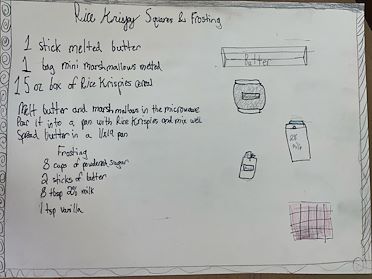 Rice Krispy Squares & Frosting
1 stick melted butter
1 bag mini marshmallows melted
15 oz box of Rice Krispies cereal
Melt butter and marshmallows in the microwave
Pour it into a pan with Rice Krispies and mix well
Spread butter in a 11x16 pan
Frosting
8 cups of powdered sugar
2 sticks of butter
8 tbsp 2% milk
1 tsp vanilla
Butter
2%
milk